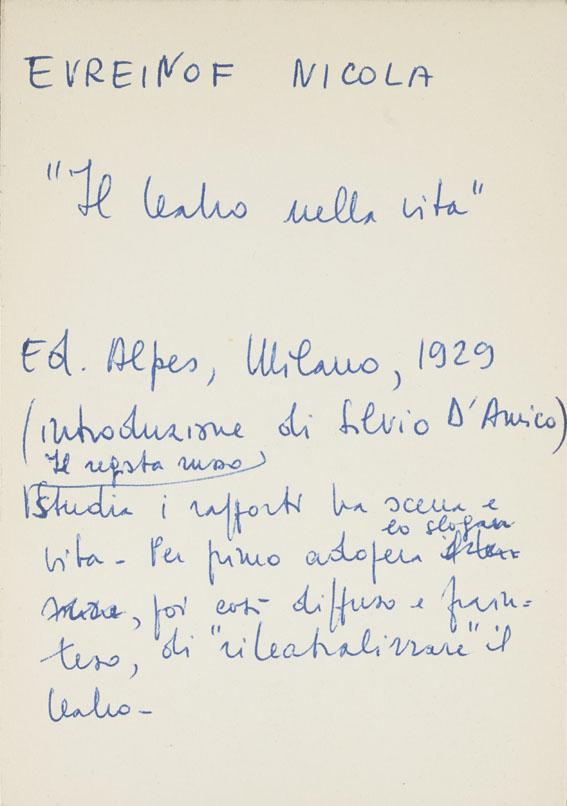 EVREINOF NICOLA
"Il teatro nella vita"
Ed. Alpes, Milano, 1929
(introduzione di Silvio D'Amico)
Il regista russo
Studia i rapporti tra scena e
lo slogan
vita - Per primo adopera
, poi così diffuso e frain=
teso, di "riteatralizzare" il
teatro -